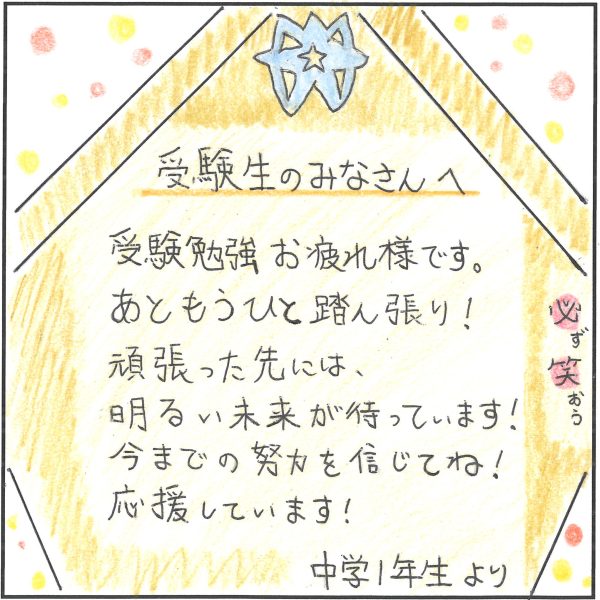 受験生のみなさんへ
受験勉強お疲れ様です。
あともうひと踏ん張り!
頑張った先には、
明るい未来が待っています!
今までの努力を信じてね!
応援しています!
中学1年生より
必ず笑おう